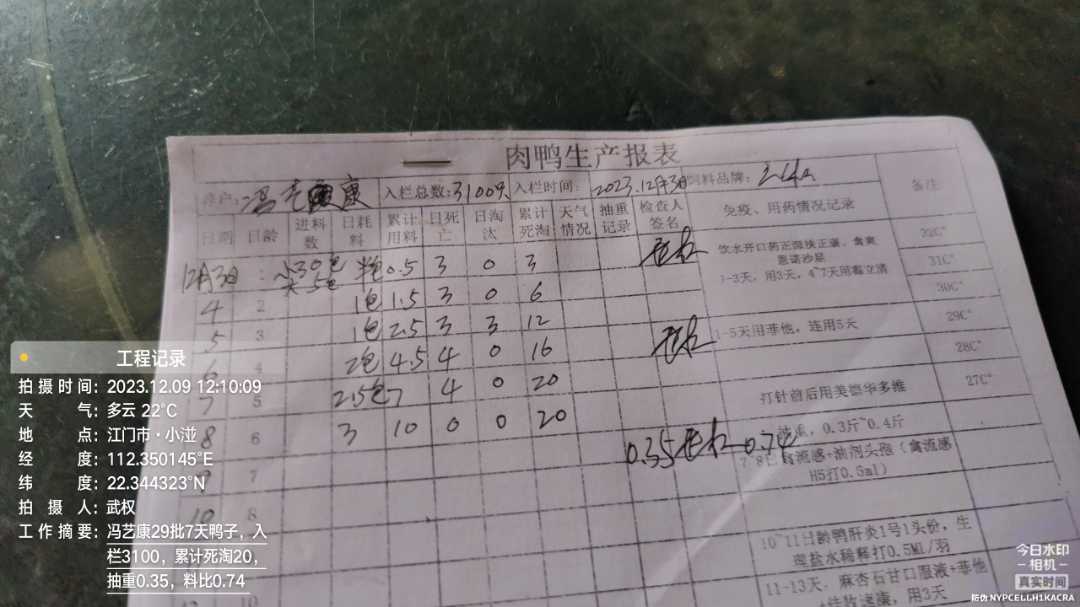 肉鸭生产报表
养户: 冯艺康 入栏总数: 3100只 入栏时间: 2023.12月3日 饲料品牌:
日期 日龄 进料数 日耗料 累计用料 日死亡 日淘汰 累计死淘 天气情况 抽重记录 检查人签名 免疫、用药情况记录 备注
12月3日 半包 0.5 3 0 3
4 2 1包 1.5 3 0 6
5 3 1包 2.5 3 3 12
6 4 2包 4.5 4 0 16
7 5 2.5包 7 4 0 20
8 6 3 10 0 0 20
9 7 0.35 0.74
10 8
10
32C°
31C°
30C°
29C°
28C°
27C°
1-3天，用3天，4~7天用霸立清
1-5天用菲他，连用5天
打针前后用美德华多维
抽重，0.3斤~0.4斤
7-8日禽流感+油剂头孢（禽流感
H5打0.5ml）
10~11日龄鸭肝炎1号1头份，生
理盐水稀释打0.5ML/羽
11-13天，麻杏石甘口服液+菲他
工程记录
拍摄时间: 2023.12.09 12:10:09
天气: 多云 22°C
地点: 江门市·小湴
经度: 112.350145°E
纬度: 22.344323°N
拍摄人: 武权
工作摘要: 冯艺康29批7天鸭子，入
栏3100，累计死淘20，
抽重0.35，料比0.74
今日水印
相机
真实时间
防伪 NYPCELLH1KACRA